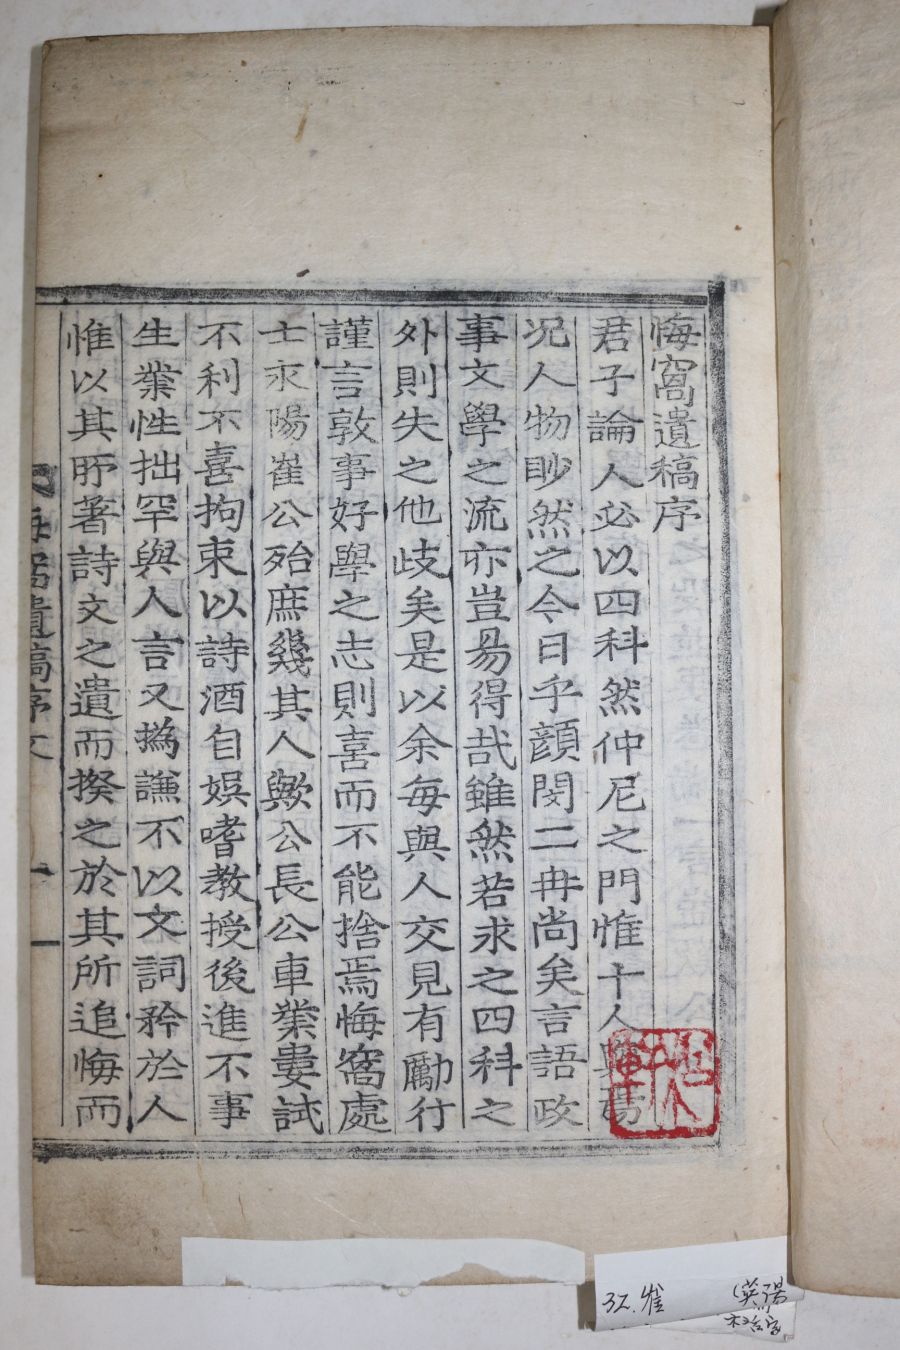 悔窩遺稿序
君子論人必以四科然仲尼之門惟十人與焉
况人物眇然之今日乎顔閔二冉尚矣言語政
事文學之流亦豈昜得㢤雖然若求之四科之
外則失之他歧矣是以余每與人交見有勵行
謹言敦事好學之志則喜而不能捨焉悔窩處
士永陽崔公殆庶幾其人歟公長公車業屢試
不利不喜拘束以詩酒自娛嗜教授後進不事
生業性拙罕與人言又撝謙不以文詞矜於人
惟以其所著詩文之遺而揆之於其所追悔而
悔窩遺稿序文
一
32.崔